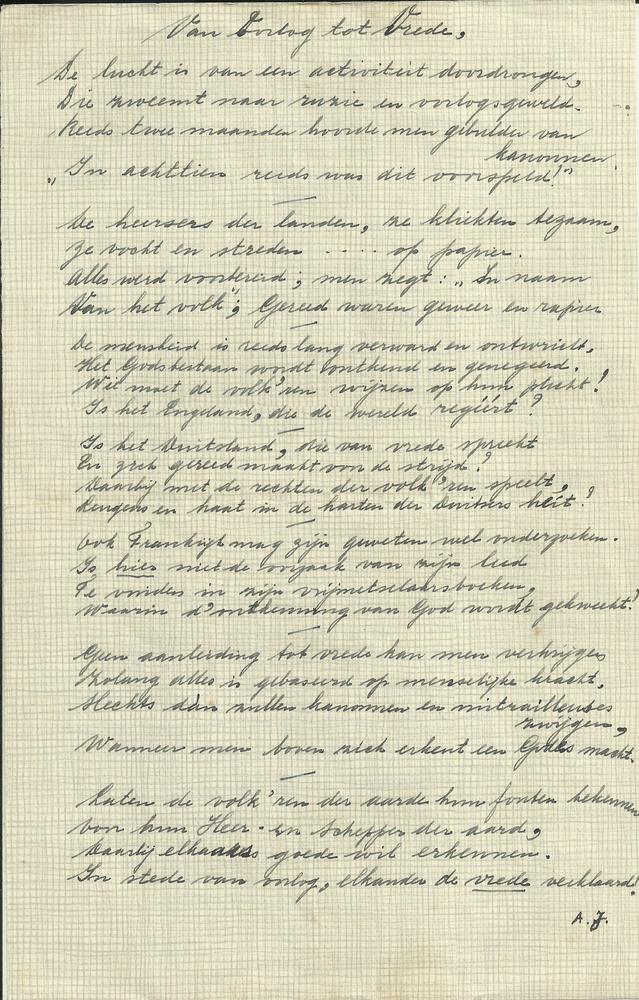 Van Oorlog tot Vrede,
De lucht is van een activiteit doordrongen,
Die zweemt naar ruzie en oorlogsgeweld.
Reeds twee maanden hoorde men gebulder van
kanonnen.
„In achttien reeds was dit voorspeld!"
De heersers der landen, ze kliekten tezaam,
Ze vocht en streden . . . . op papier.
Alles werd voorbereid; men zegt: „In naam
Van het volk"; Gereed waren geweer en rapier
De mensheid is reeds lang verward en ontwricht,
Het Godsbestaan wordt ontkend en genegeerd.
Wie moet de volk'ren wijzen op hun plicht!
Is het Engeland, die de wereld regéért?
Is het Duitsland, die van vrede spreekt
En zich gereed maakt voor de strijd?
Daarbij met de rechten der volk'ren speelt,
Leugens en haat in de harten der Duitsers
Ook Frankrijk mag zijn geweten wel onderzoeken.
Is hier niet de oorzaak van zijn leed
Te vinden in zijn vrijmetselaarsboeken,
Waarin d'ontkenning van God wordt gekweekt!
Geen aanleiding tot vrede kan men verkrijgen
Zolang alles is gebaseerd op menselijke kracht,
Slechts dàn zullen kanonnen en mitrailleuses
zwijgen,
Wanneer men boven zich erkent een Gods macht.
Laten de volk'ren der aarde hun fouten bekennen
Voor hun Heer- en Schepper der aard,
Daarbij elkaars goede wil erkennen.
In stede van oorlog, elkander de vrede verklaard!
A. J.